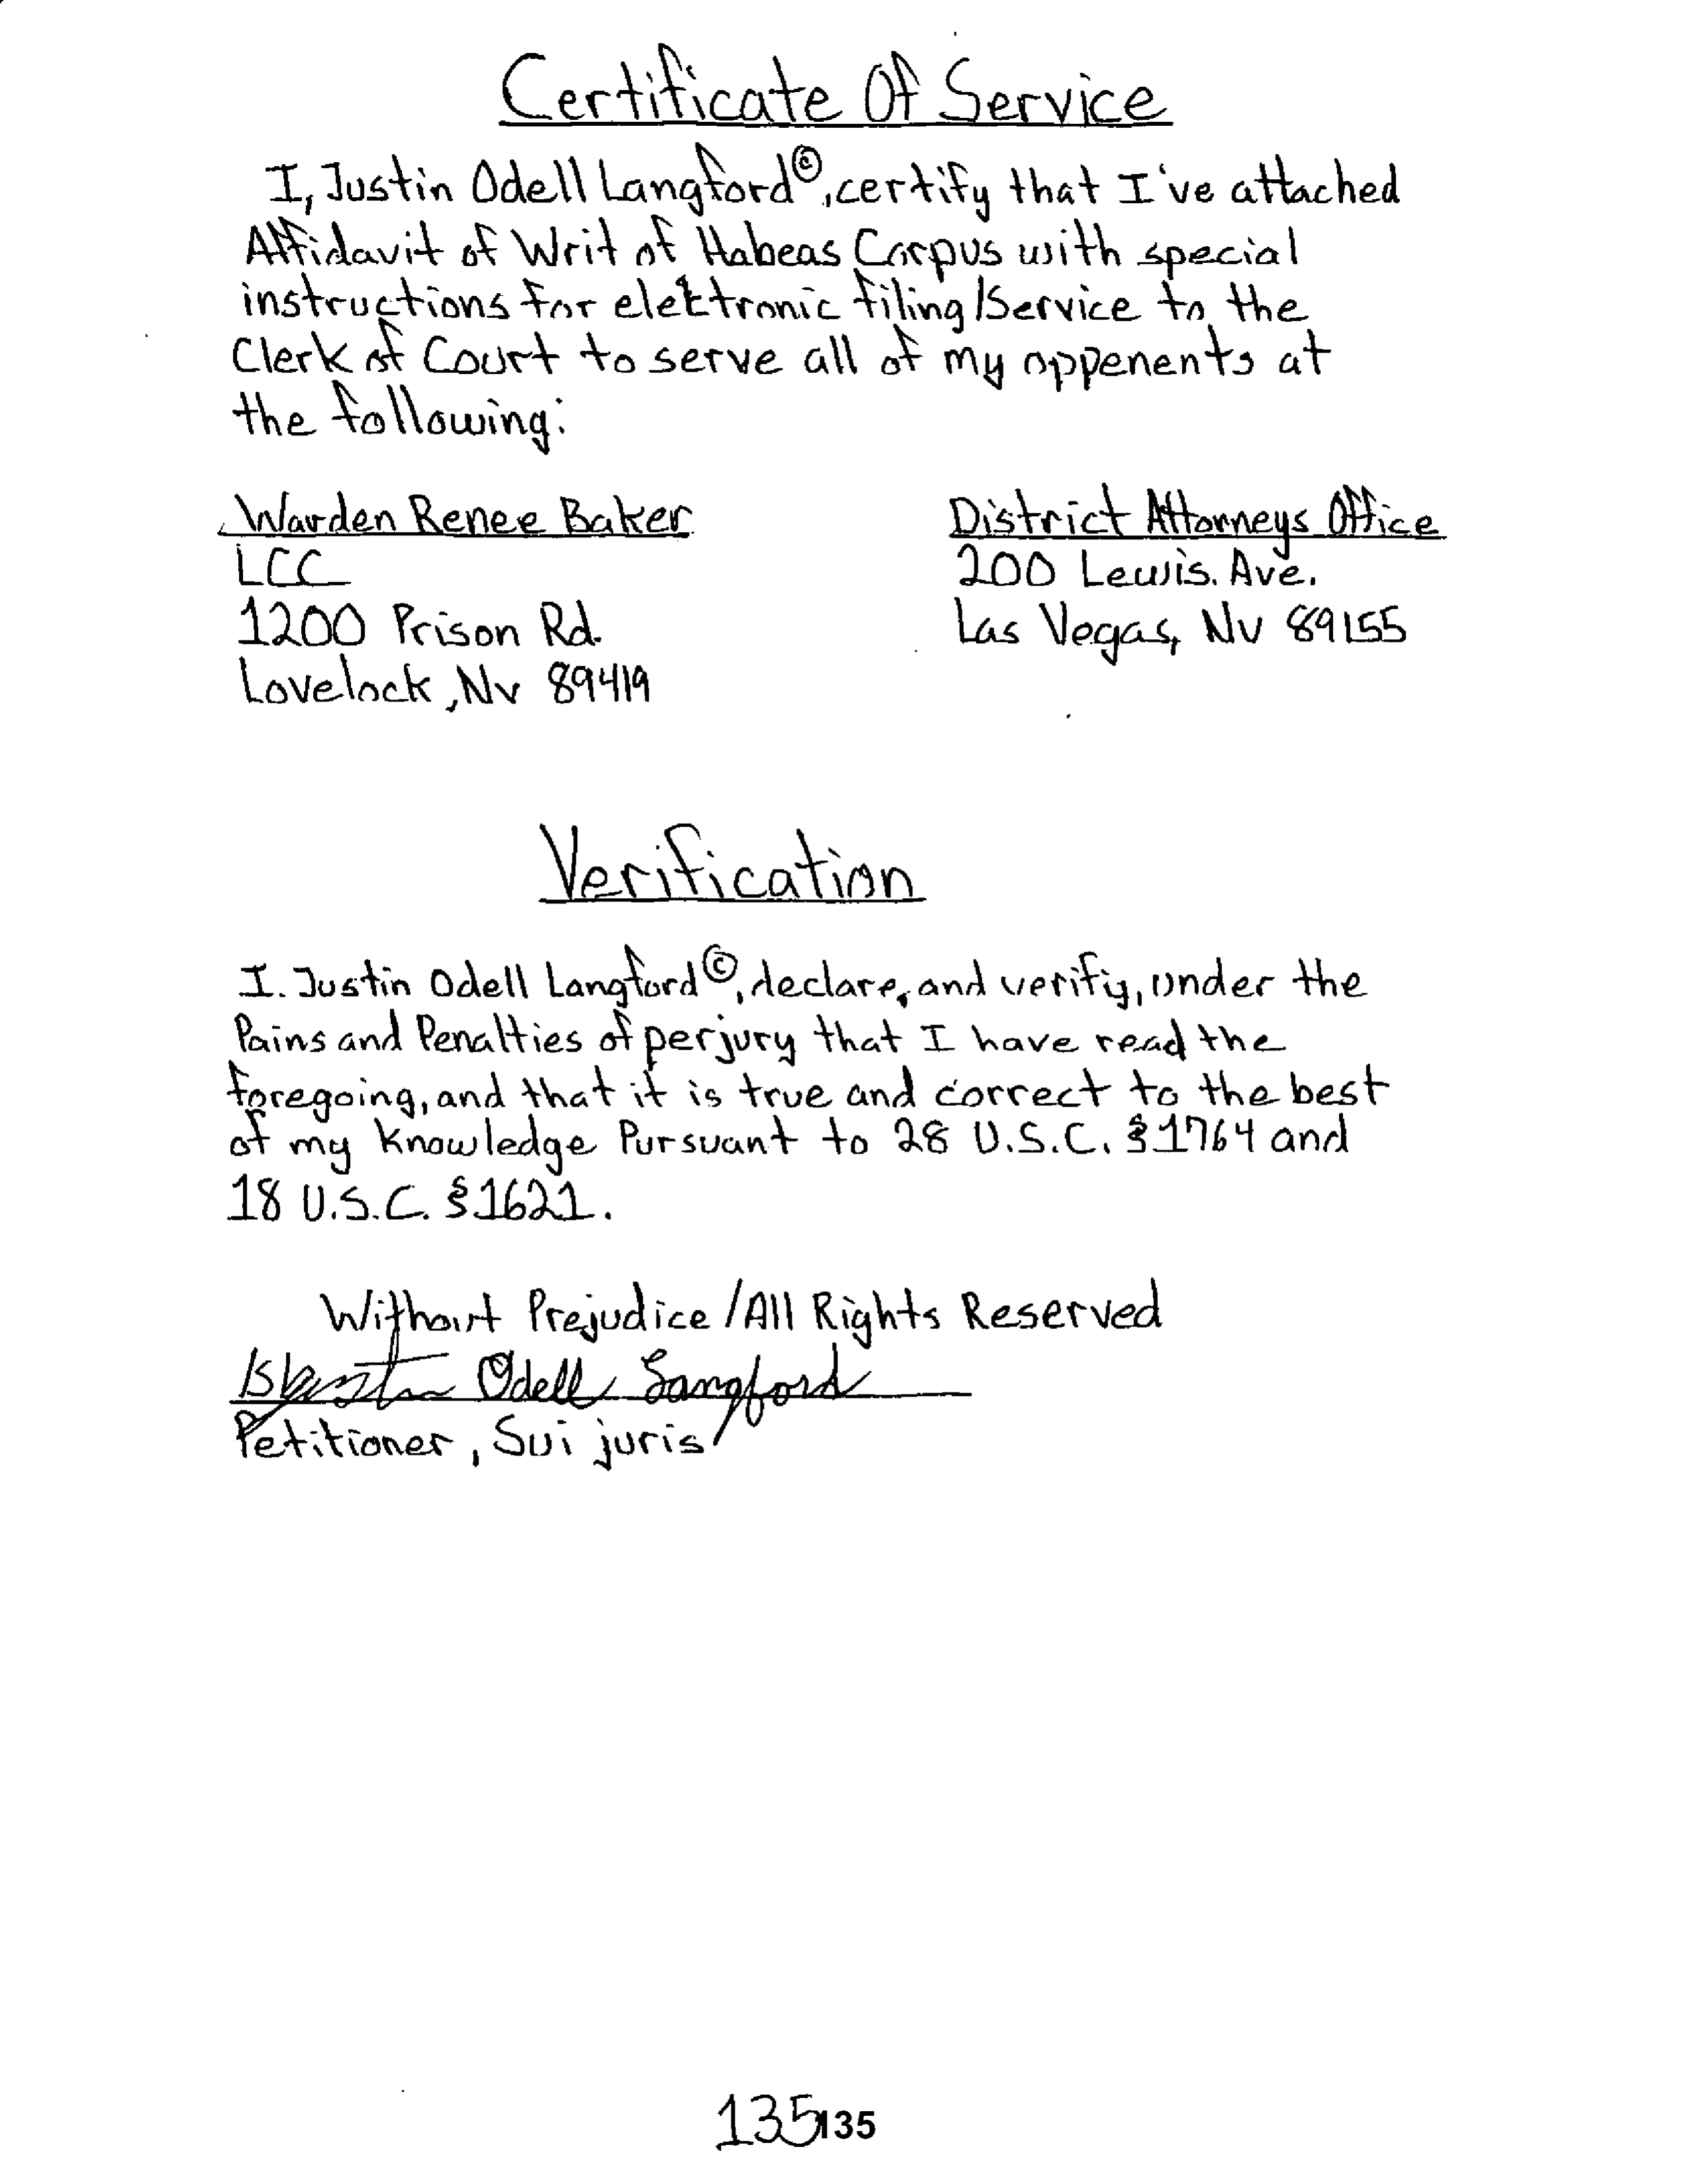 Certificate Of Service
I, Justin Odell Langford©, certify that I've attached
Affidavit of Writ of Habeas Corpus with special
instructions for elektronic filing/Service to the
Clerk of Court to serve all of my oppenents at
the following:
Warden Renee Baker
LCC
1200 Prison Rd.
Lovelock, Nv 89419
District Attorneys Office
200 Lewis. Ave.
Las Vegas, Nv 89155
Verification
I. Justin Odell Langford©, declare, and verifiy, under the
Pains and Penalties of perjury that I have read the
foregoing, and that it is true and correct to the best
of my knowledge Pursuant to 28 U.S.C. §1764 and
18 U.S.C. §1621.
Without Prejudice /All Rights Reserved
/s/ Justin Odell Langford
Petitioner, Sui juris
135 135